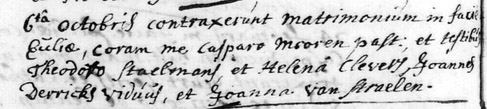 6ta octobris contraxerunt matrimonium in facie
Eccliæ, coram me Casparo Mooren past: et testibus
Theodoro Staelmans et Helena Clevers, Joannes
Derricks viduus, et Joanna van Straelen.